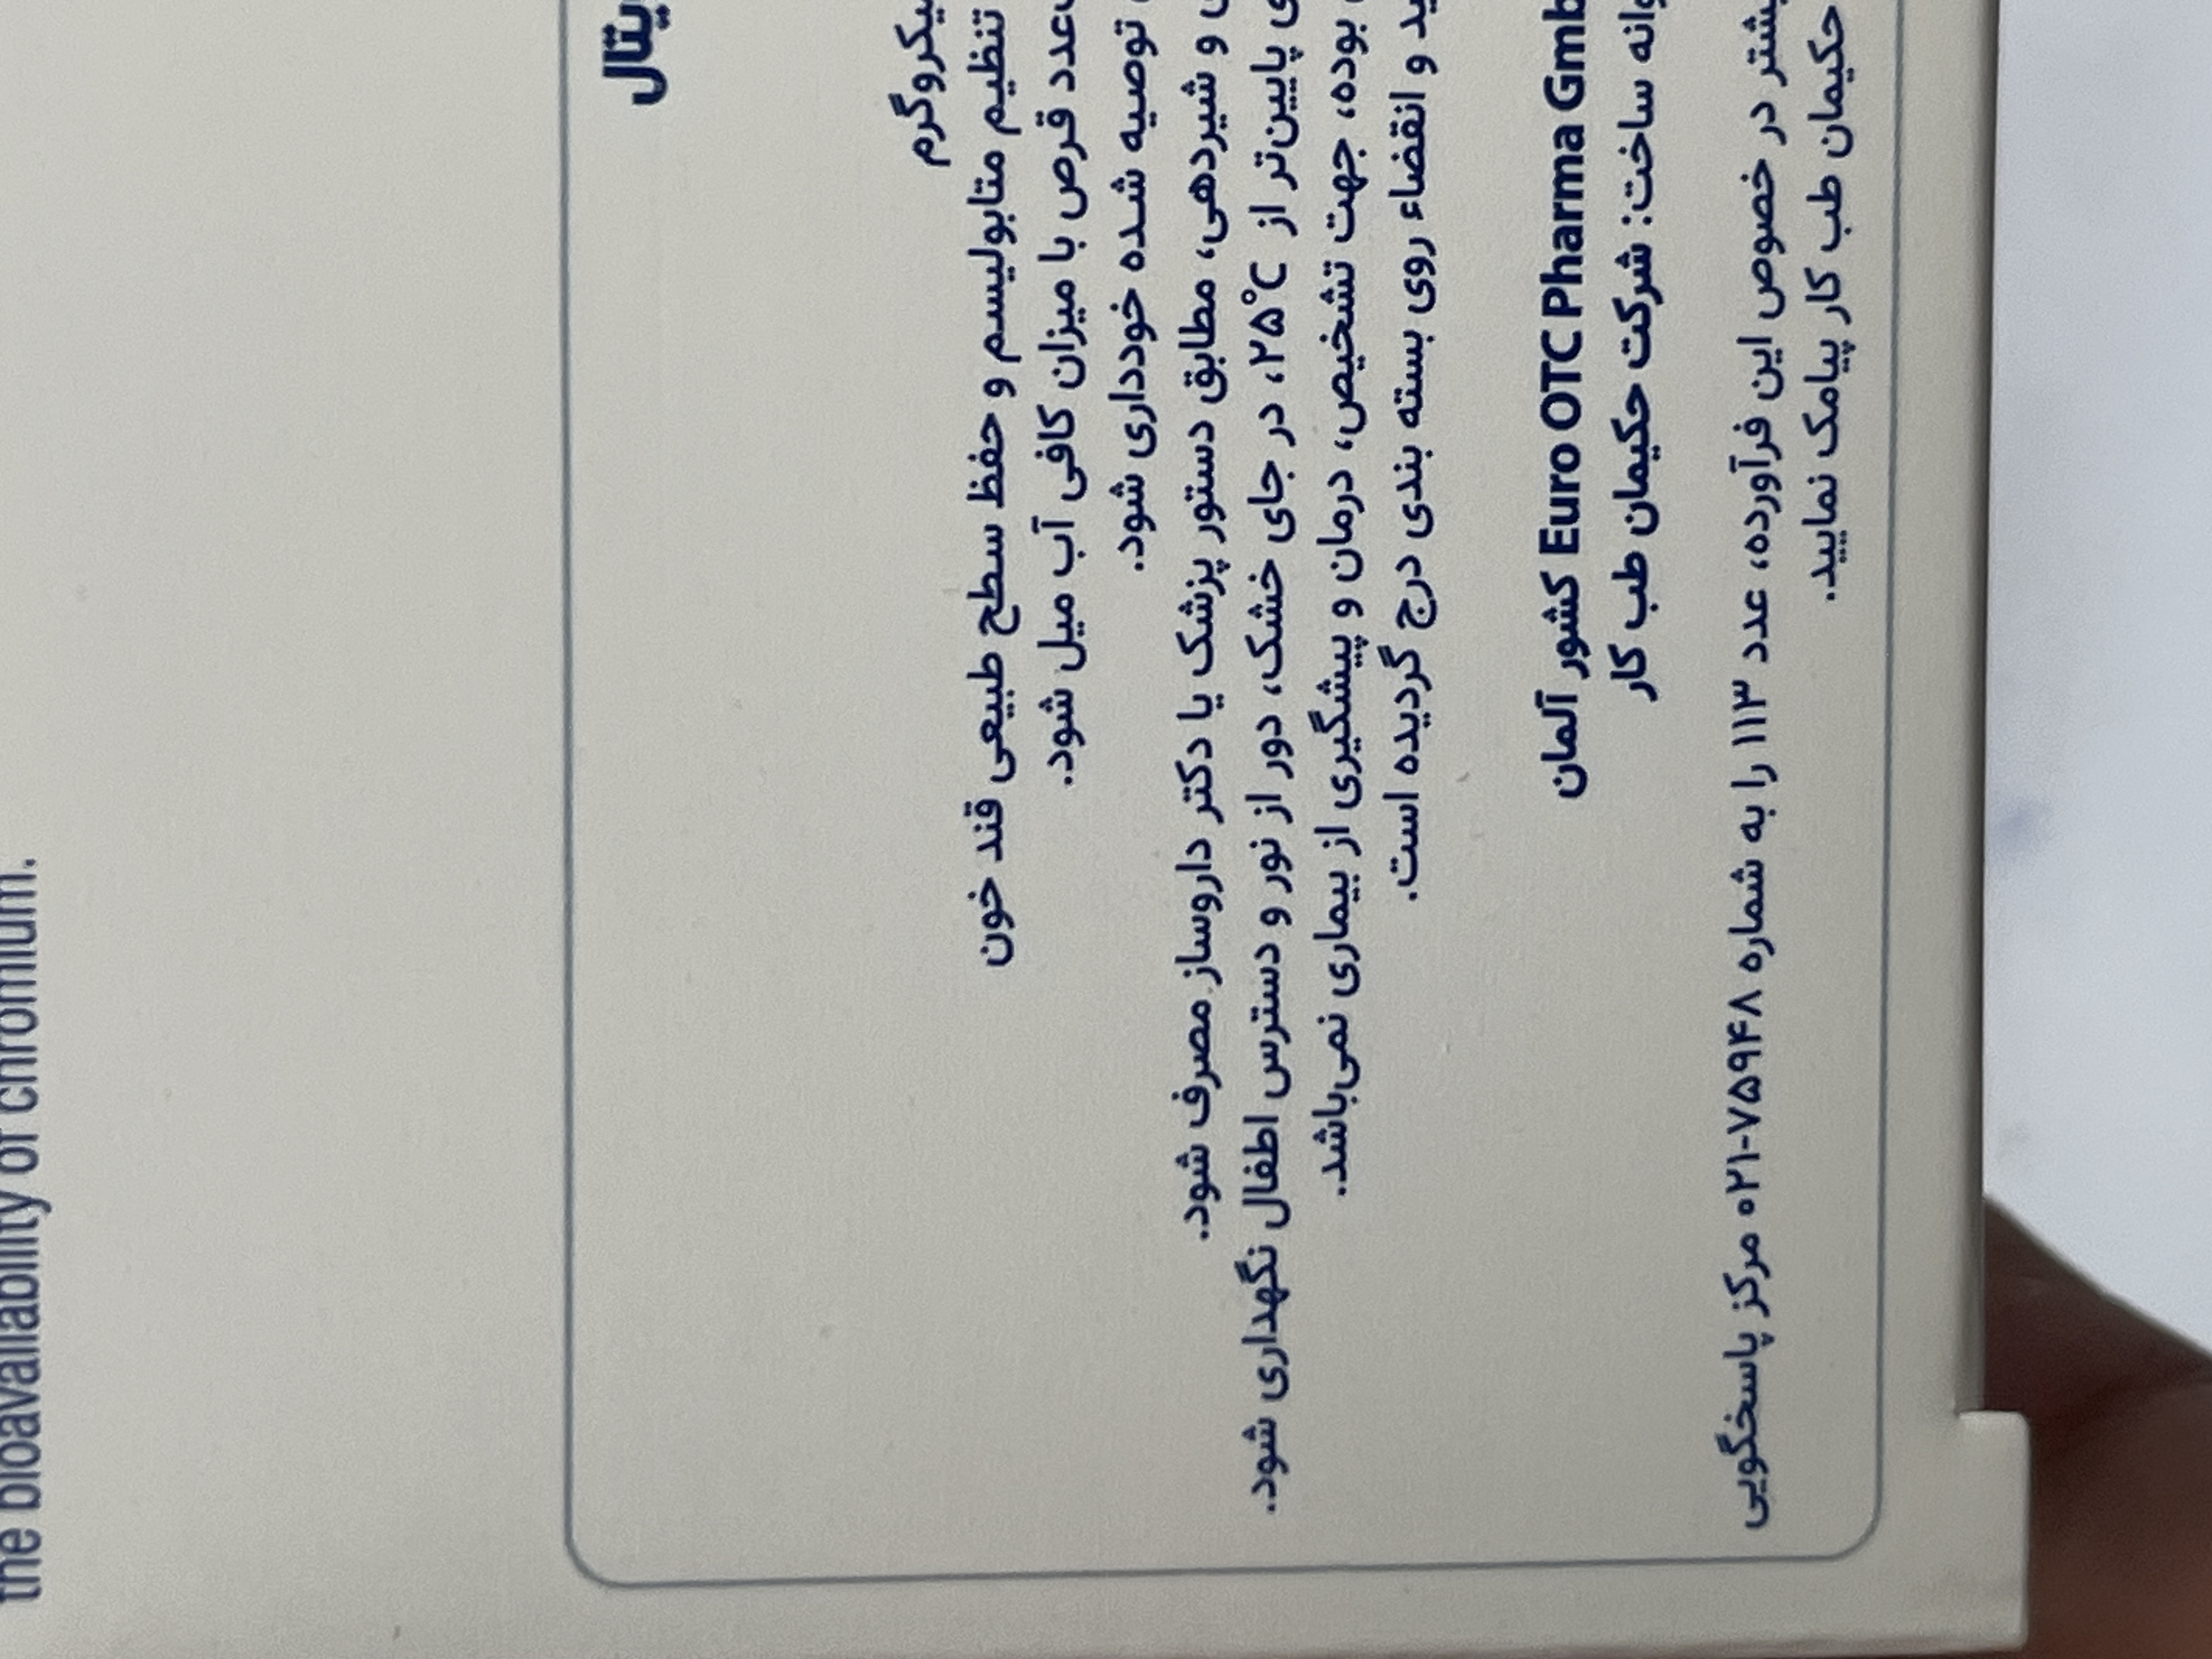 the bioavailability of chromium.
تنظیم متابولیسم و حفظ سطح طبیعی قند خون
قرص با میزان کافی آب میل شود.
توصیه شده خودداری شود.
و شیردهی، مطابق دستور پزشک یا دکتر داروساز مصرف شود.
پایین‌تر از ۲۵°C، در جای خشک، دور از نور و دسترس اطفال نگهداری شود.
بوده، جهت تشخیص، درمان و پیشگیری از بیماری نمی‌باشد.
و انقضاء روی بسته بندی درج گردیده است.
Euro OTC Pharma Gmb کشور آلمان
ساخت: شرکت حکیمان طب کار
در خصوص این فرآورده، عدد ۱۱۳ را به شماره ۷۵۹۴۸-۰۲۱ مرکز پاسخگویی
حکیمان طب کار پیامک نمایید.